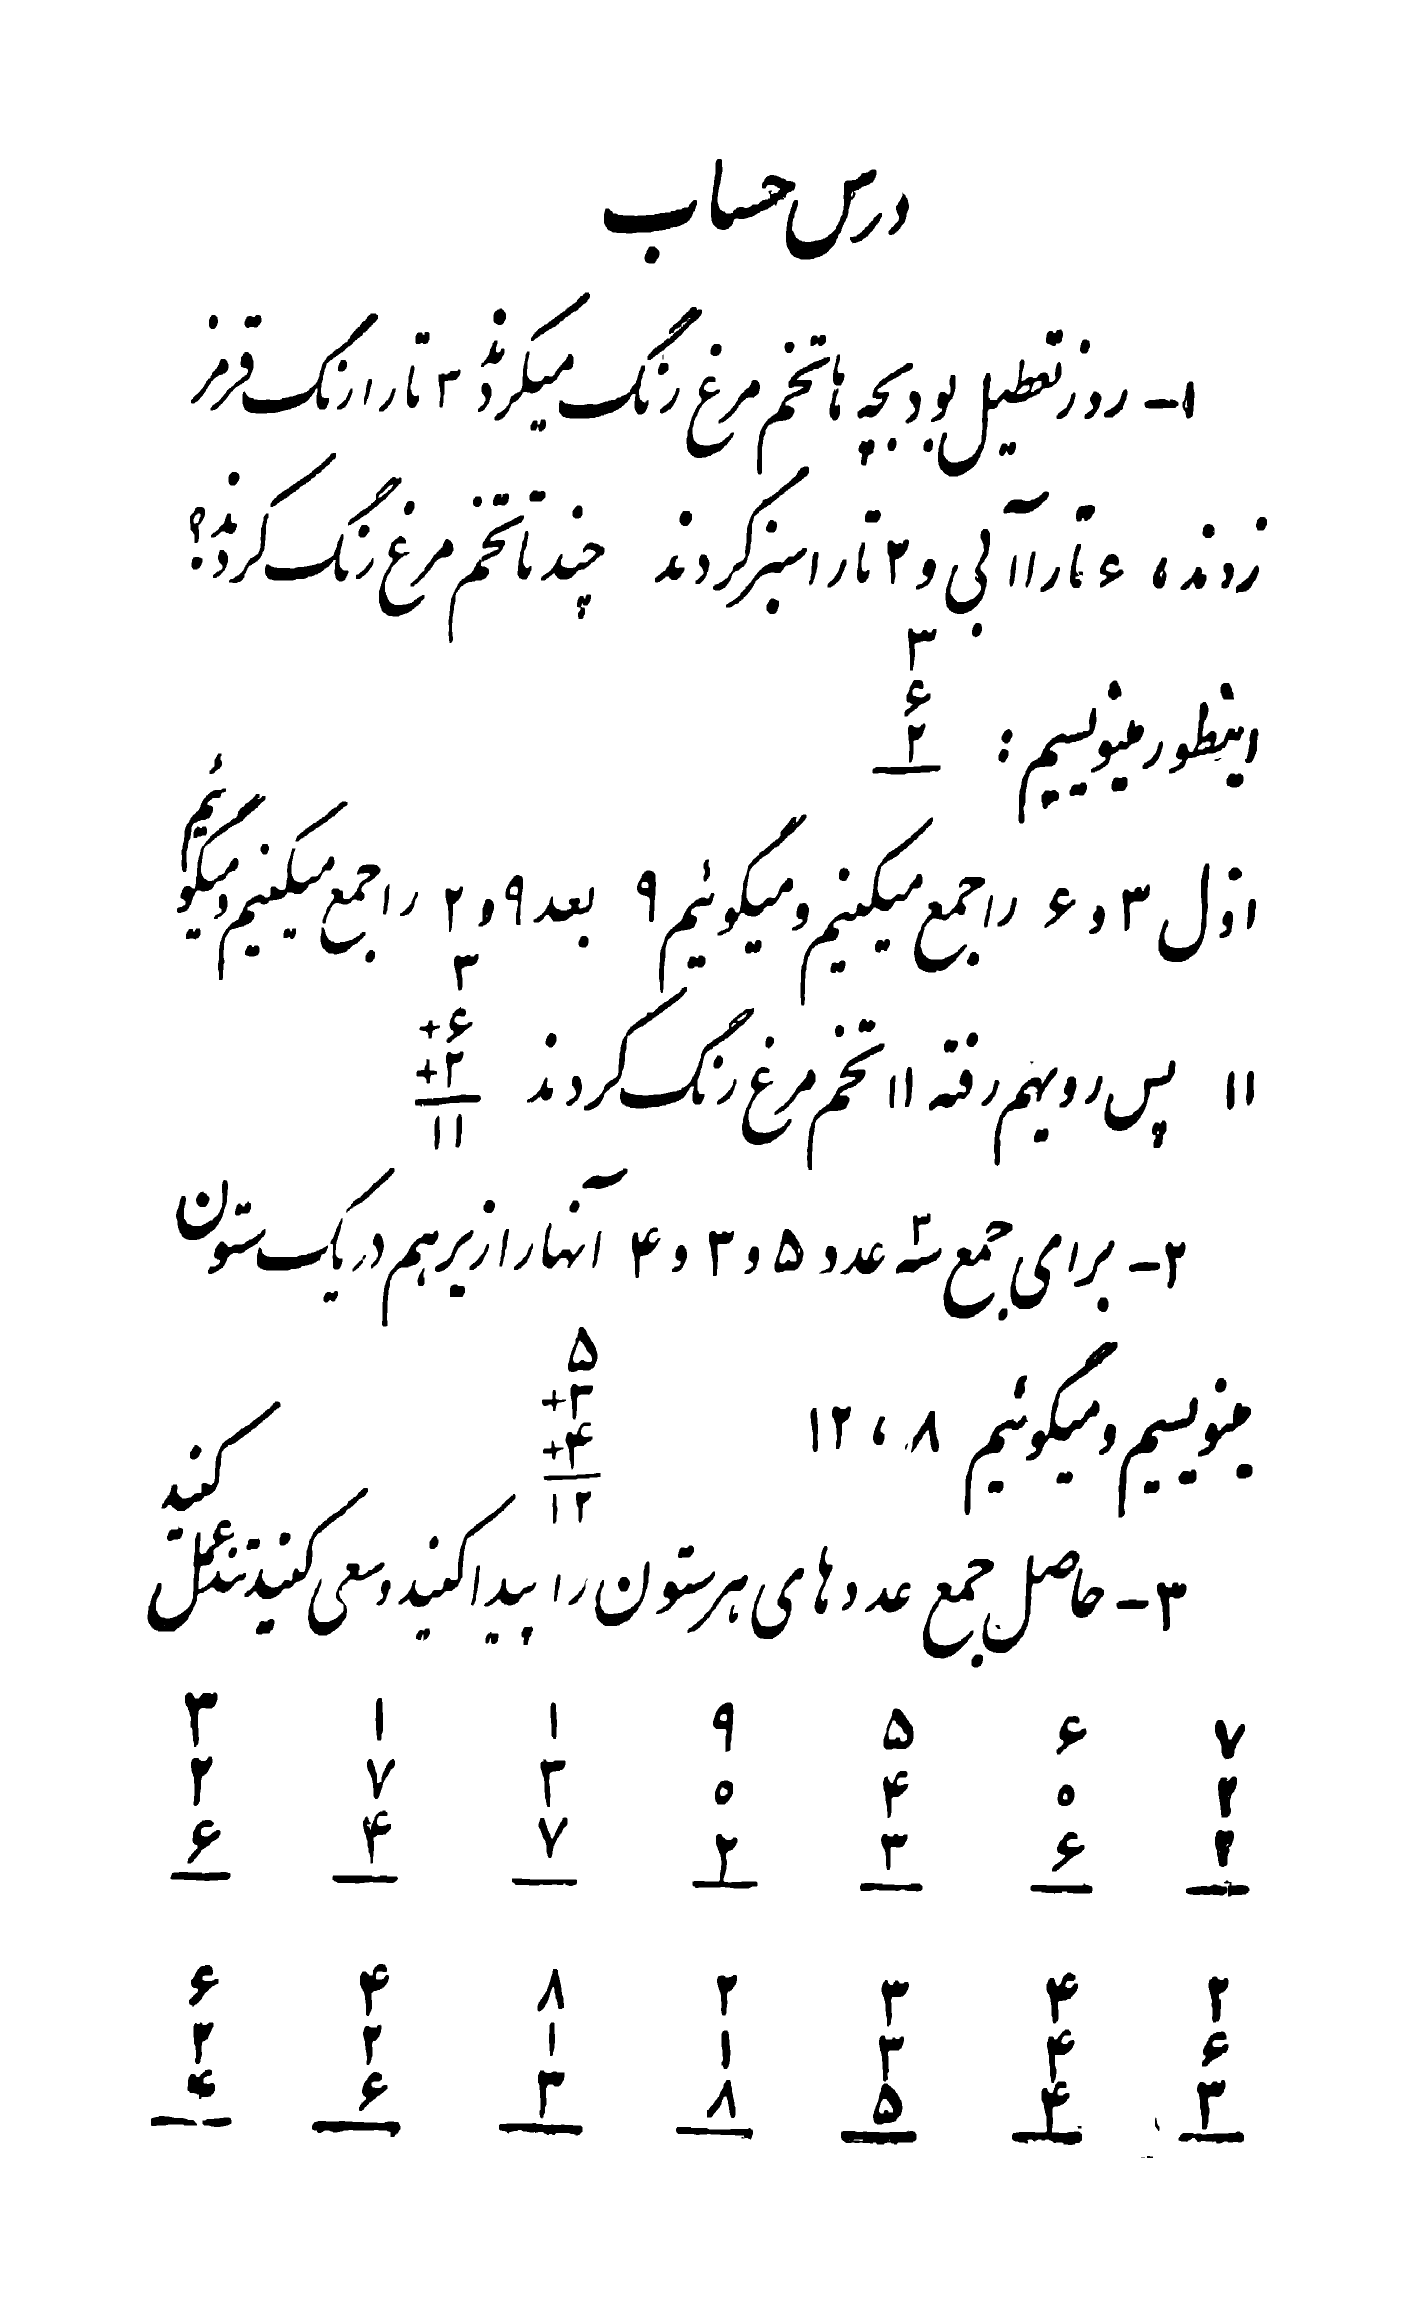 درس حساب
۱- روز تعطیل بود بچه ها تخم مرغ رنگ میکردند ۳ تا را رنگ قرمز
زدند، ۶ تا را آبی و ۲ تا را سبز کردند چند تا تخم مرغ رنگ کردند؟
۳
۶
اینطور مینویسیم: ۲
اول ۳ و ۶ را جمع میکنیم و میگوئیم ۹ بعد ۹ و ۲ را جمع میکنیم و میگوئیم
۳
+۶
۱۱ پس رویهم رفته ۱۱ تخم مرغ رنگ کردند +۲
۱۱
۲- برای جمع سه عدد ۵ و ۳ و ۴ آنها را زیر هم در یک ستون
۵
+۳
مینویسیم و میگوئیم ۸، ۱۲ +۴
۱۲
۳- حاصل جمع عددهای هر ستون را پیدا کنید و سعی کنید تند عمل کنید
۷ ۶ ۵ ۹ ۱ ۱ ۳
۲ ۰ ۴ ۰ ۳ ۷ ۲
۲ ۶ ۳ ۲ ۷ ۴ ۶
۲ ۴ ۳ ۲ ۸ ۴ ۶
۶ ۴ ۳ ۱ ۱ ۲ ۲
۳ ۴ ۵ ۸ ۳ ۶ ۴